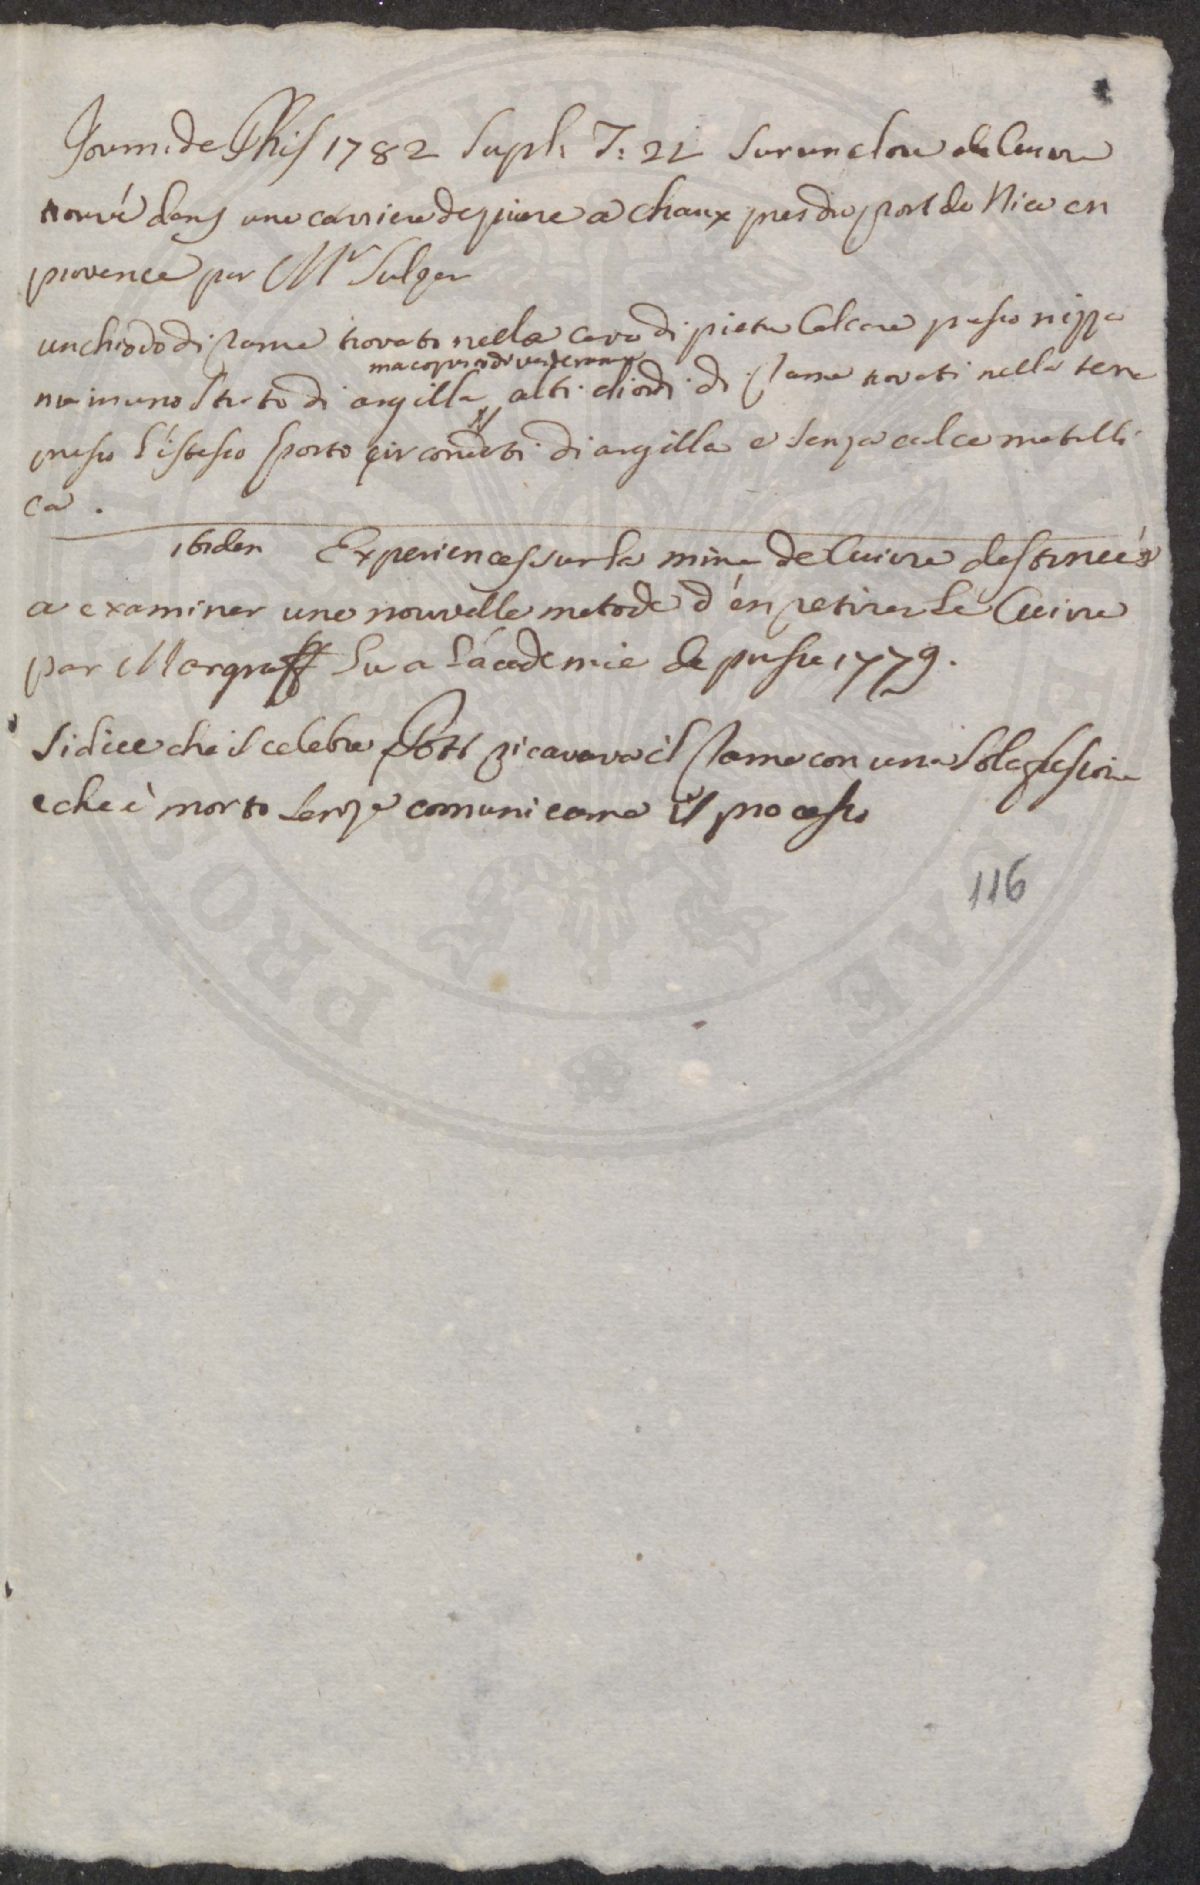 Journ: de Phis 1782 Supl: T: 21 Sur un clou de Cuivre
trouvé dans une carriere de piere a chaux pres du port de Nice en
provence par Mr Sulzer
un chiodo di rame trovato nella cava di pietra Calcare presso nizza
ma in uno Strato di argilla altri chiodi di rame trovati nella terra
ma coperto di
presso l'istesso sporto circondati di argilla e senza calce metalli
ca.
ibiden Experiences sur la mine de Cuivre destinées
a examiner une nouvelle metode d'én retirer le Cuivre
par Margraff Lu a l'academie de prusse 1779.
Si dice che il celebre Pott ricavava il rame con una sola fusione
e che è morto senza comunicarne il processo
116
PUBLICAE
PRO